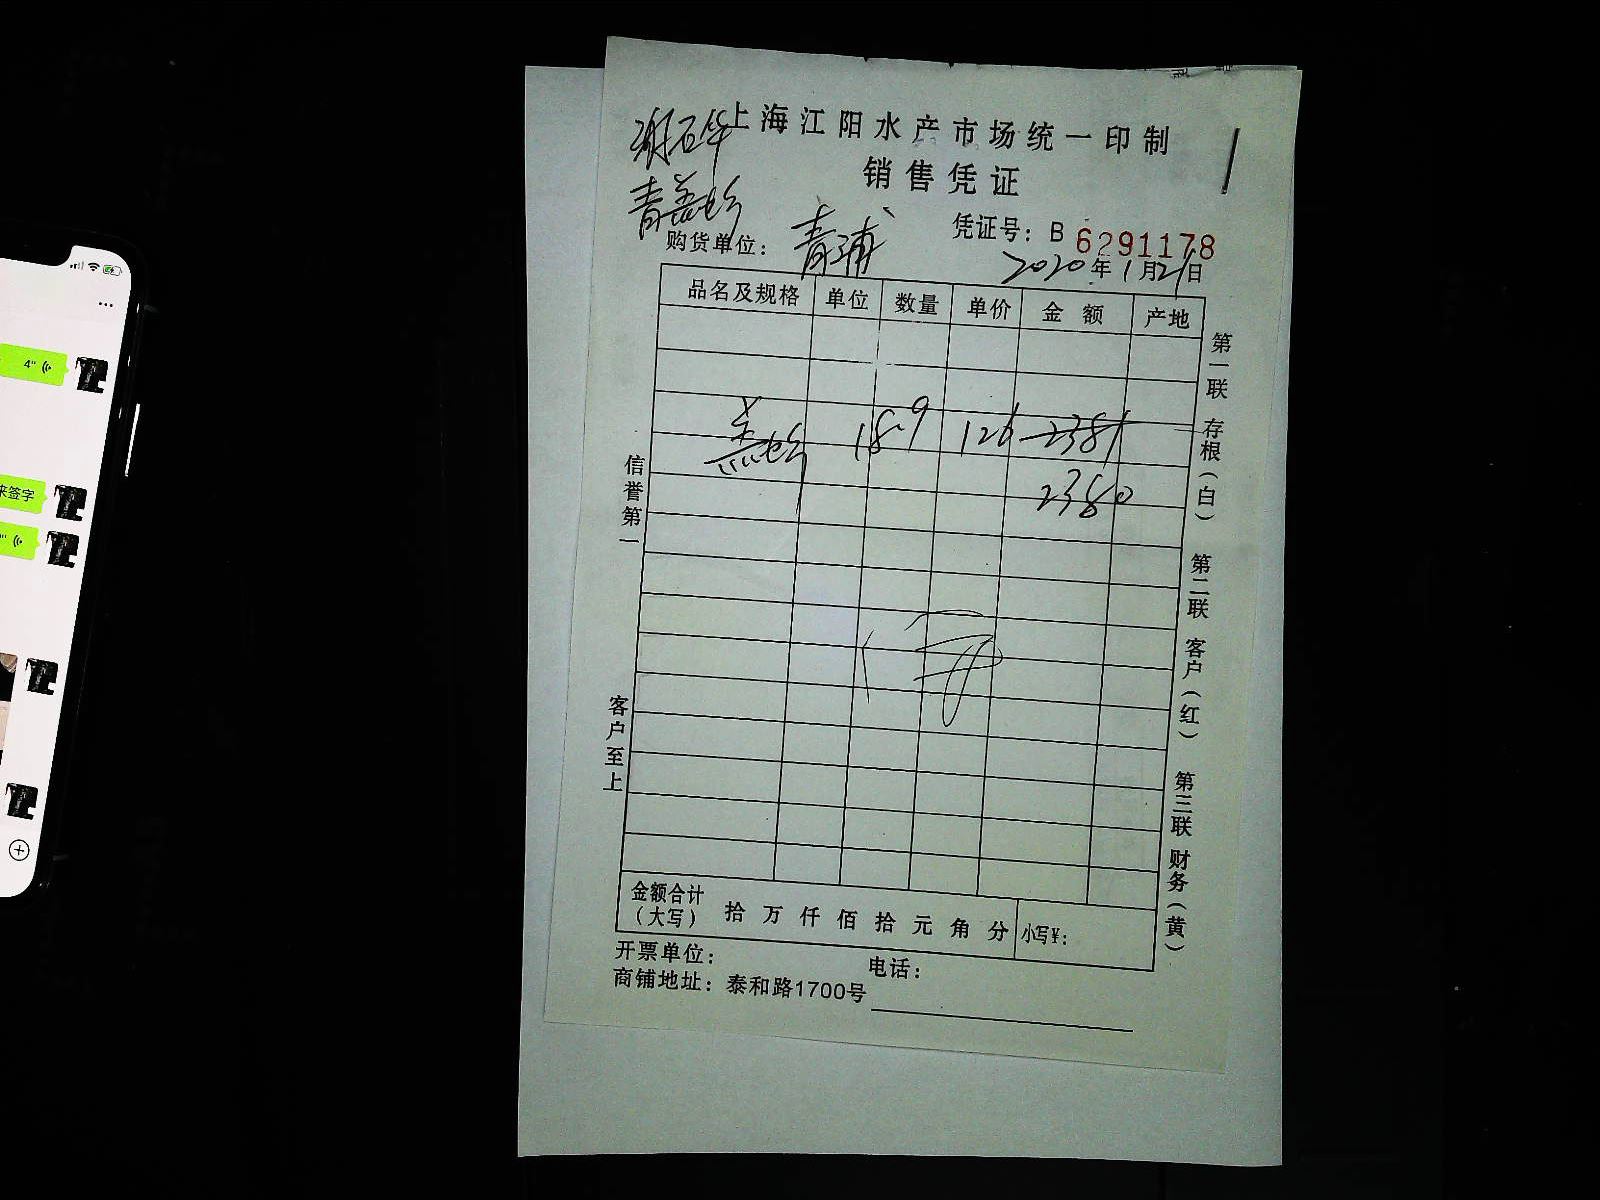 上海江阳水产市场统一印制
销售凭证
凭证号：B 6291178
购货单位：青浦
2020年1月21日
品名及规格 单位 数量 单价 金 额 产地
18.9 126 2381
2380
金额合计（大写） 拾 万 仟 佰 拾 元 角 分 小写¥：
开票单位： 电话：
商铺地址：泰和路1700号
信誉第一
客户至上
第一联 存根（白）
第二联 客户（红）
第三联 财务（黄）
4"
来签字